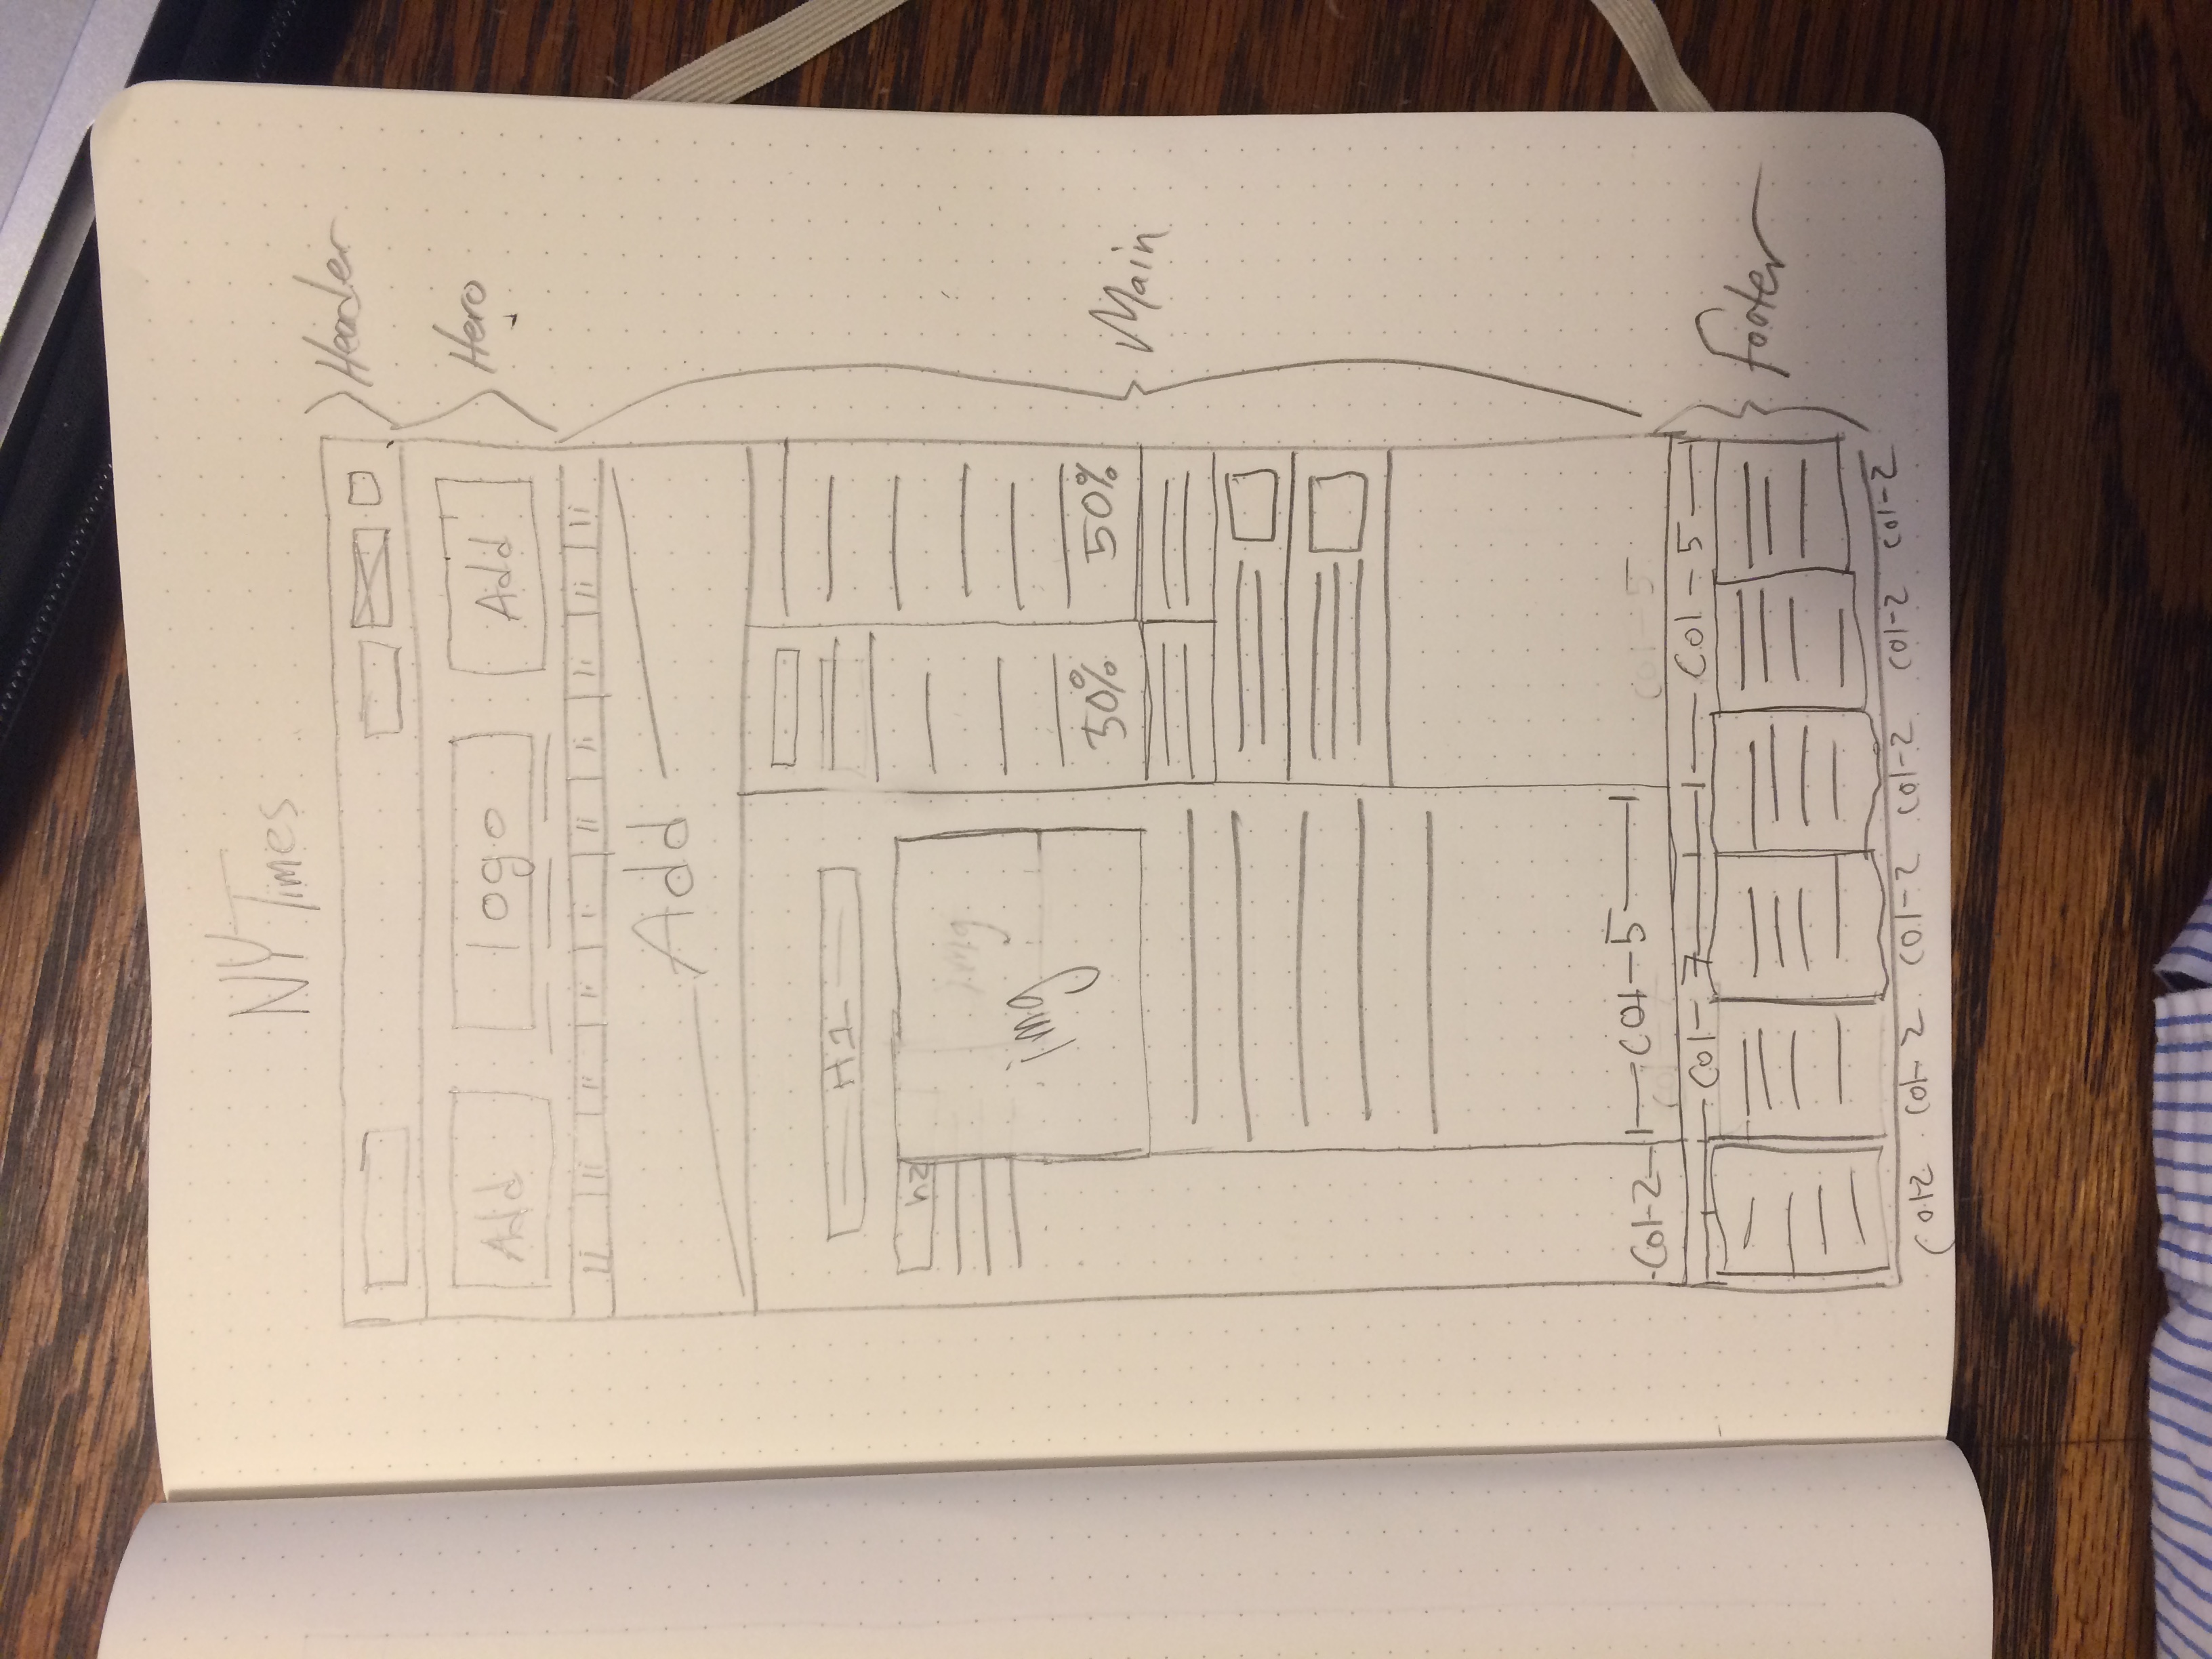 NY Times
Header
Add logo Add
Hero
li li li li li li li li li li
Add
H1
h2
img
img
50% 50%
Main
Col-2 Col-5 Col-5
Col-7 Col-5
Footer
Col2 Col-2 Col-2 Col-2 Col-2 Col-2